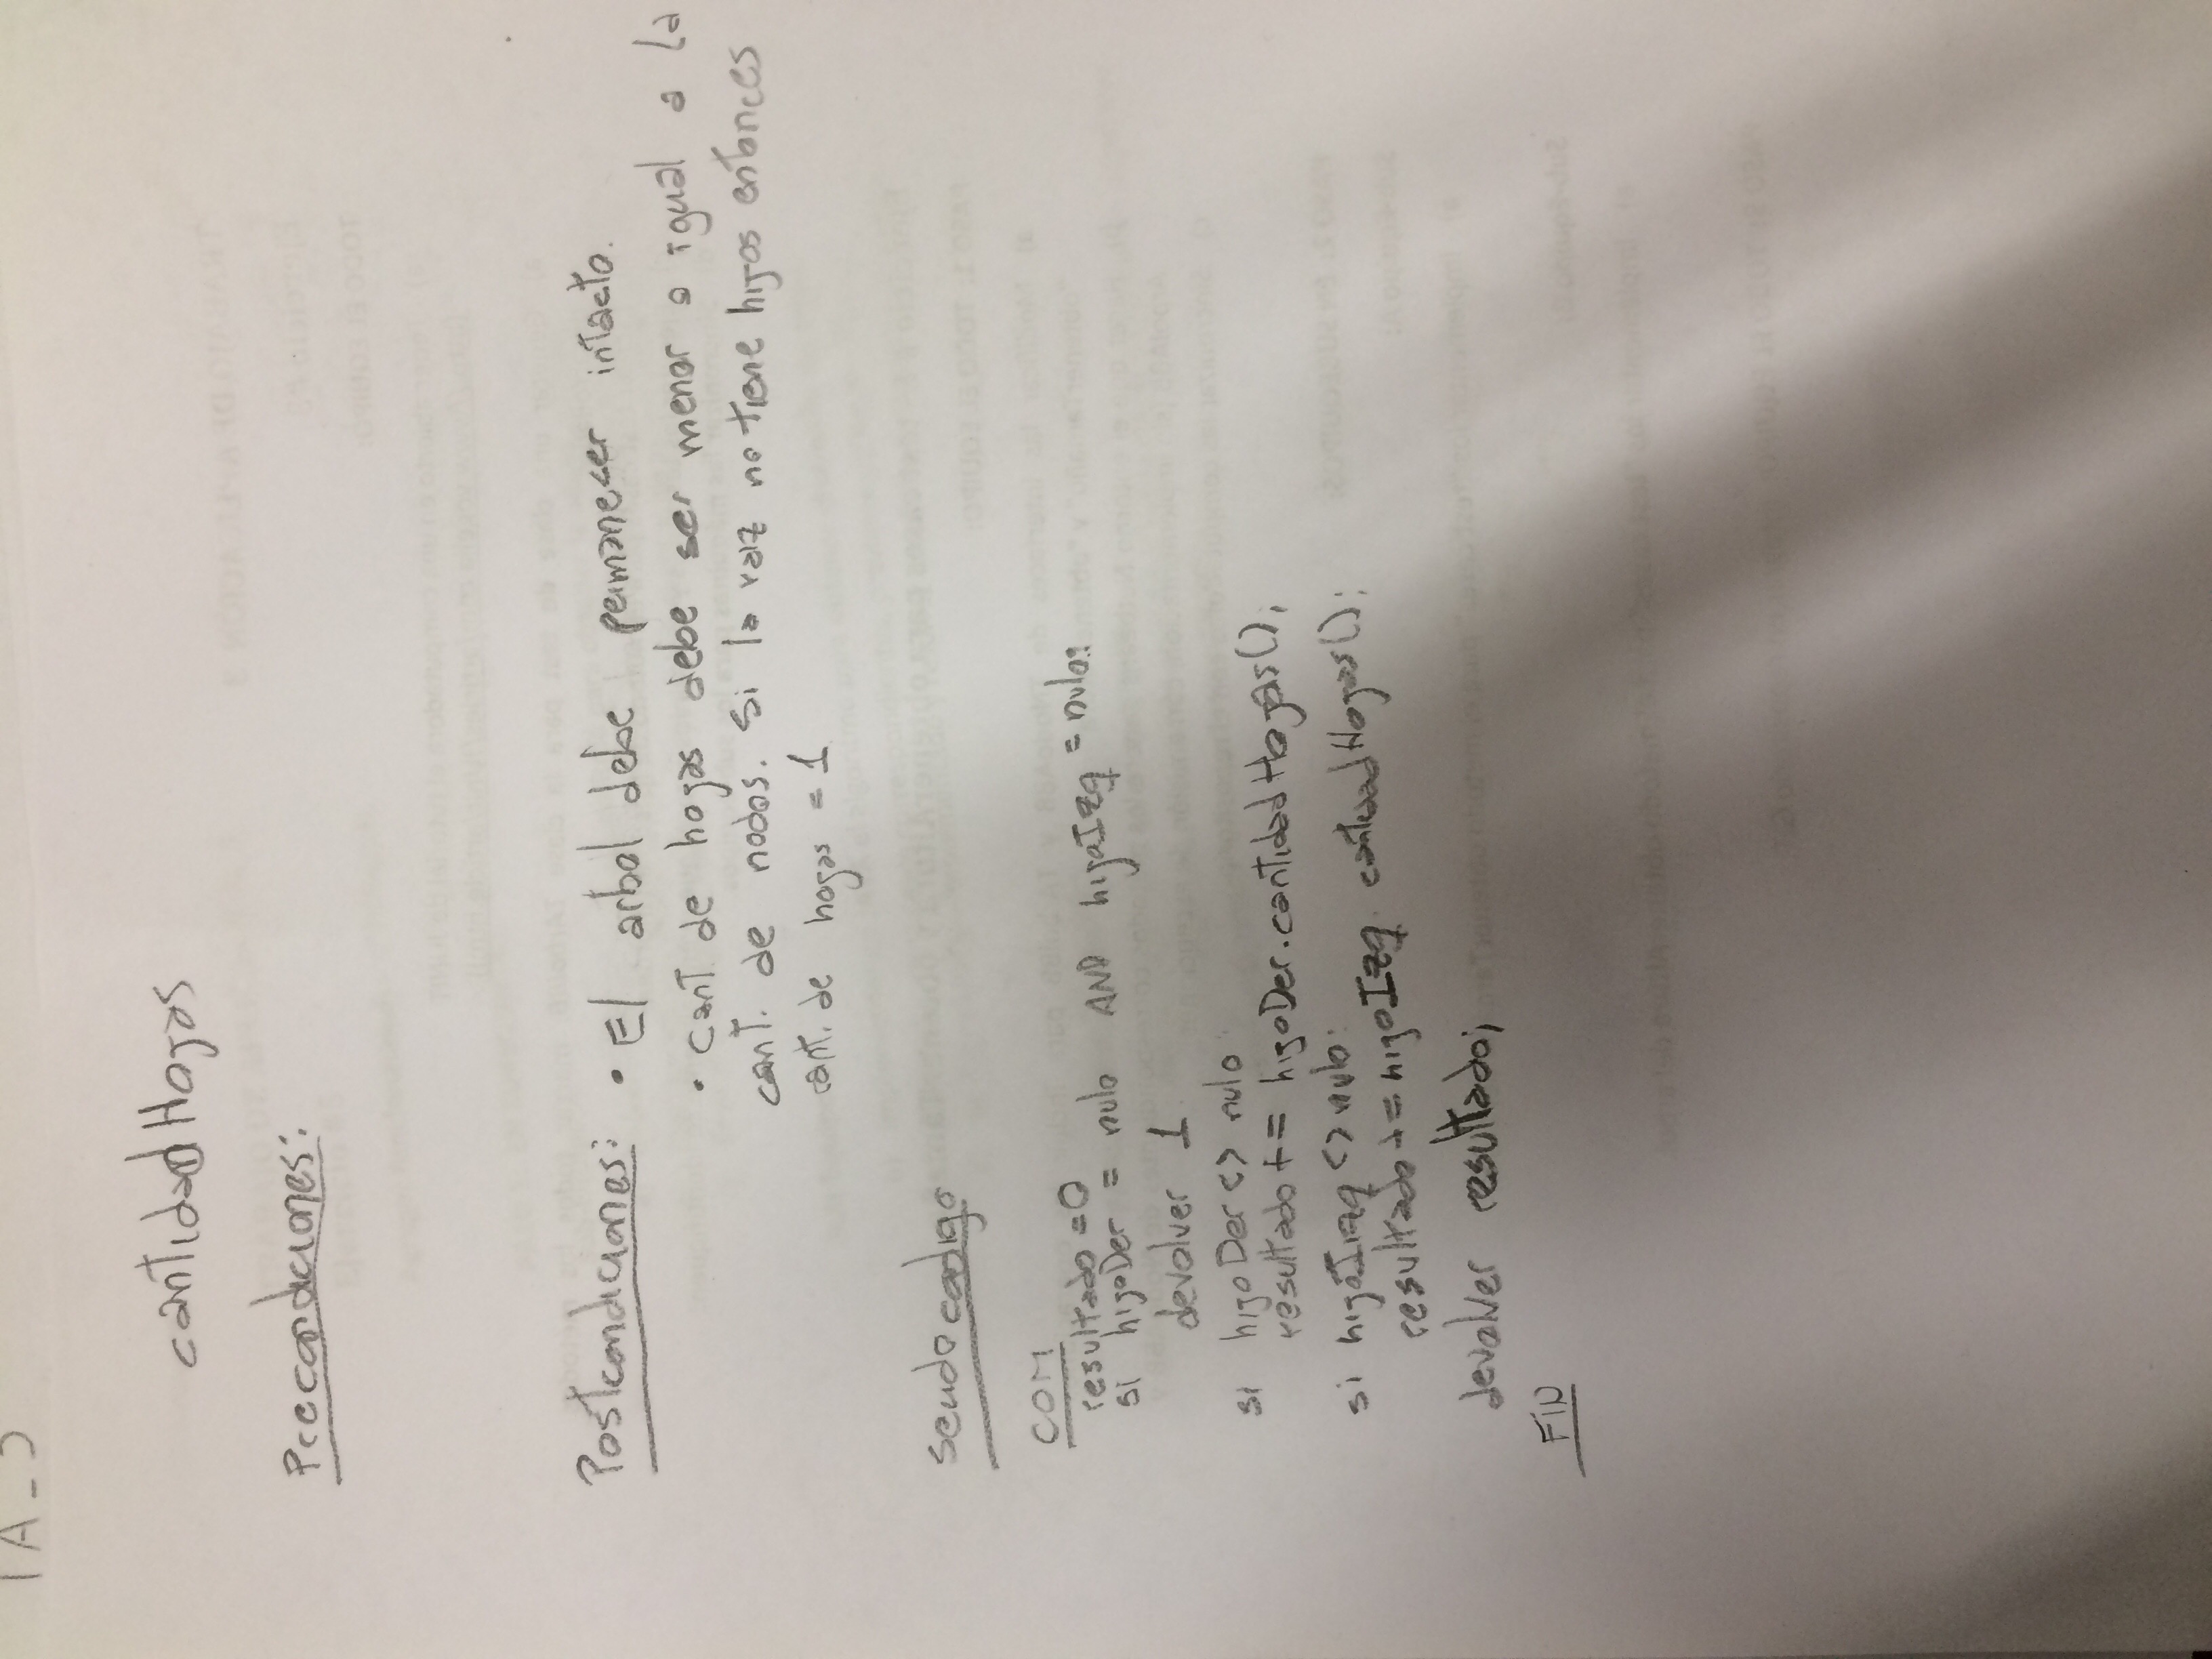 TA_3
cantidadHojas
Precondiciones:
Postcondiciones: • El arbol debe permanecer intacto.
• cant. de hojas debe ser menor o igual a la
cant. de nodos. Si la raiz no tiene hijos entonces
cant. de hojas = 1
seudocodigo
COM
resultado = 0
si hijoDer = nulo AND hijoIzq = nulo:
devolver 1
si hijoDer <> nulo:
resultado += hijoDer.cantidadHojas();
si hijoIzq <> nulo:
resultado += hijoIzq.cantidadHojas();
devolver resultado;
FIN